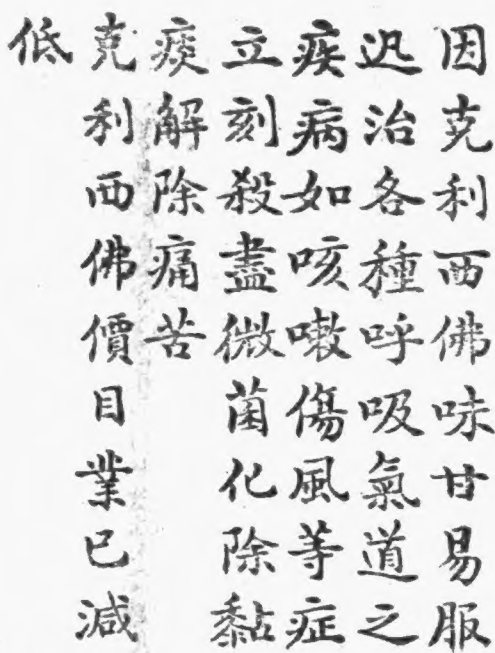 因克利西佛味甘易服
迅治各種呼吸氣道之
疾病如咳嗽傷風等症
立刻殺盡微菌化除黏
痰解除痛苦
克利西佛價目業已減
低